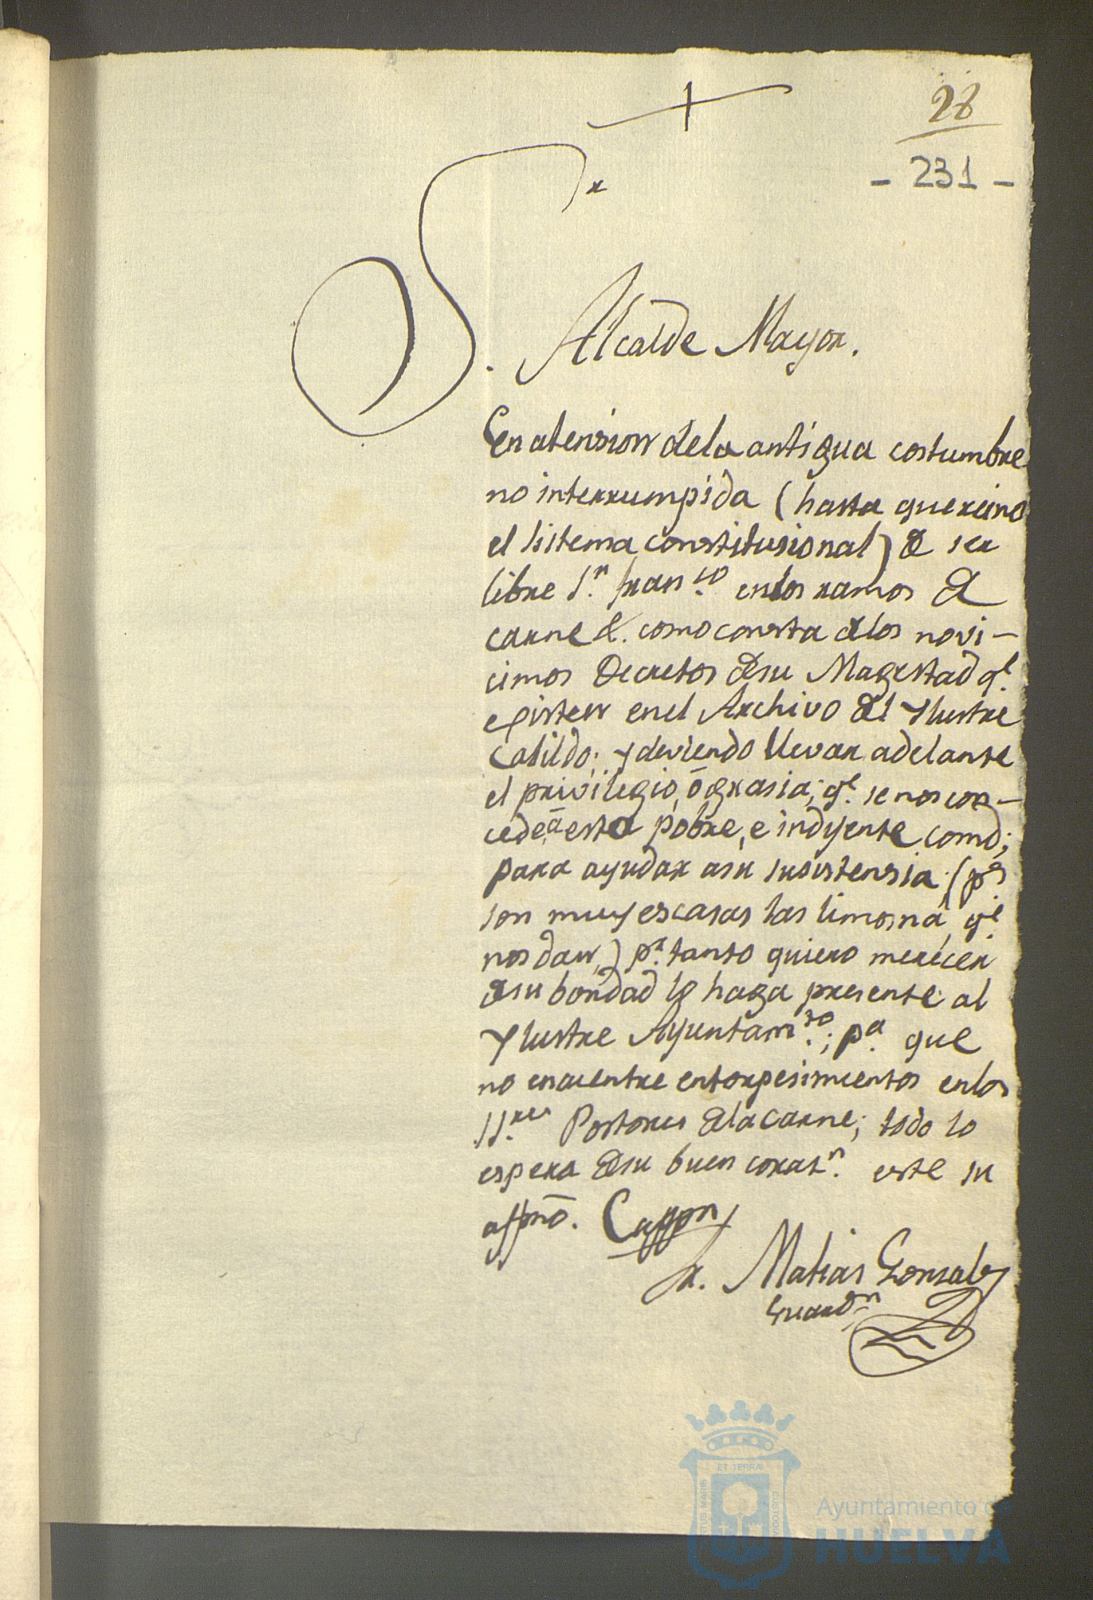 28
- 231 -
Sr
Alcalde Mayor.
En atension dela antigua costumbre
no interrumpida (hasta que reino
el sistema constitusional) de ser
libre Sn. Fran.co enlos ramos de
carne &. como consta delos noví-
cimos Decretos desu Magestad qe.
existen enel Archivo del Ylustre
Cabildo; y deviendo llevar adelante
el privilegio, ó grasia, qe. se nos con-
cede á esta pobre, e indijente comd;
para ayudar asu susistensia (ps
son muy escasas las limosna qe
nos dan,) pr. tanto quiero merecer
desu bondad lo haga presente al
Ylustre Ayuntam.to; pa. que
no encuentre entorpesimientos enlos
SS.res Postores dela carne; todo lo
espera desu buen corasn. este su
affmo. Cappn
Fr. Matias Gonsales
Guardn
Ayuntamiento de
HUELVA